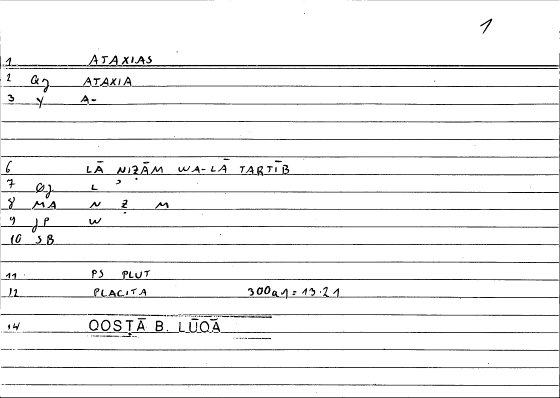 1
1 ATAXIAS
2 Qj ATAXIA
3 Y A-
6 LĀ NIẒĀM WA-LĀ TARTĪB
7 Øj L ʾ
8 MA N Ẓ M
9 JP W
10 SB
11 PS PLUT
12 PLACITA 300a1=13.21
14 QOSṬĀ B. LŪQĀ